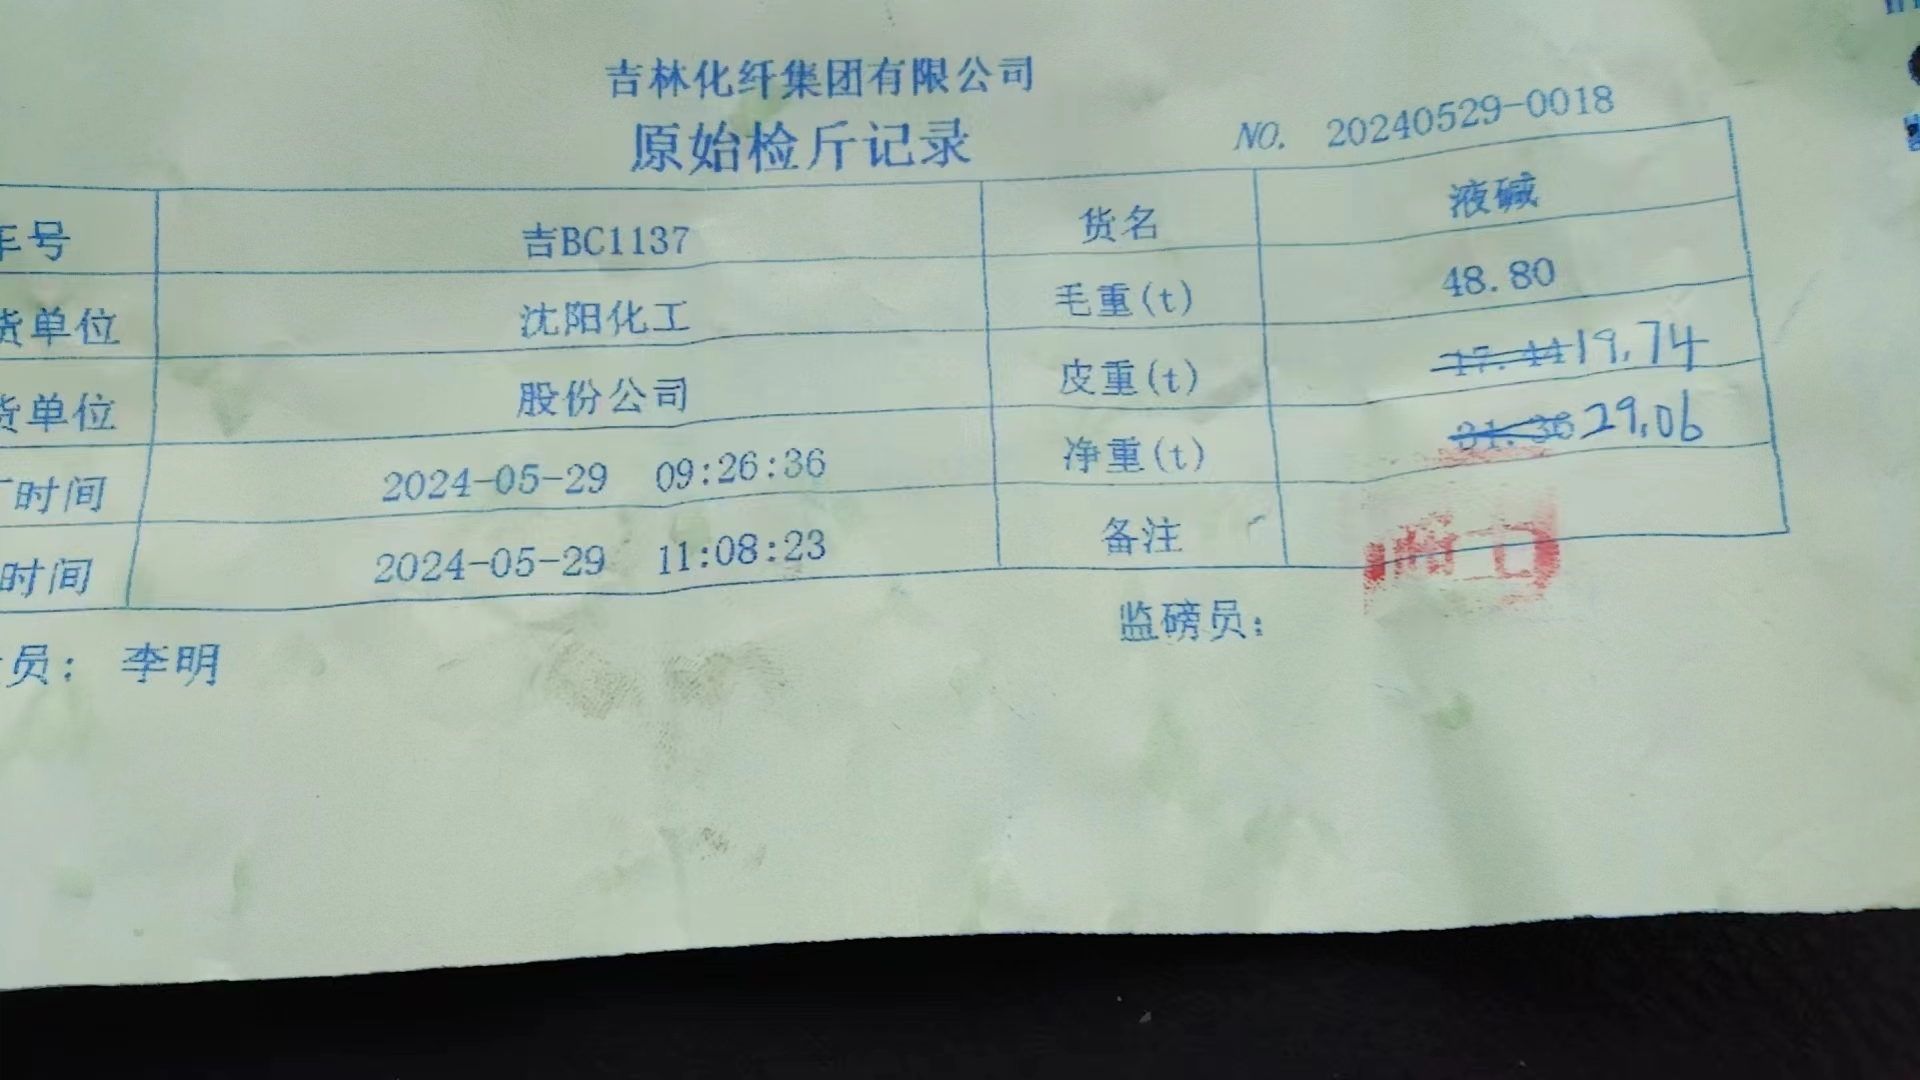 吉林化纤集团有限公司
原始检斤记录
NO. 20240529-0018
车号 吉BC1137 货名 液碱
货单位 沈阳化工 毛重(t) 48.80
货单位 股份公司 皮重(t) 17.44 19.74
时间 2024-05-29 09:26:36 净重(t) 31.36 29.06
时间 2024-05-29 11:08:23 备注
员: 李明 监磅员: